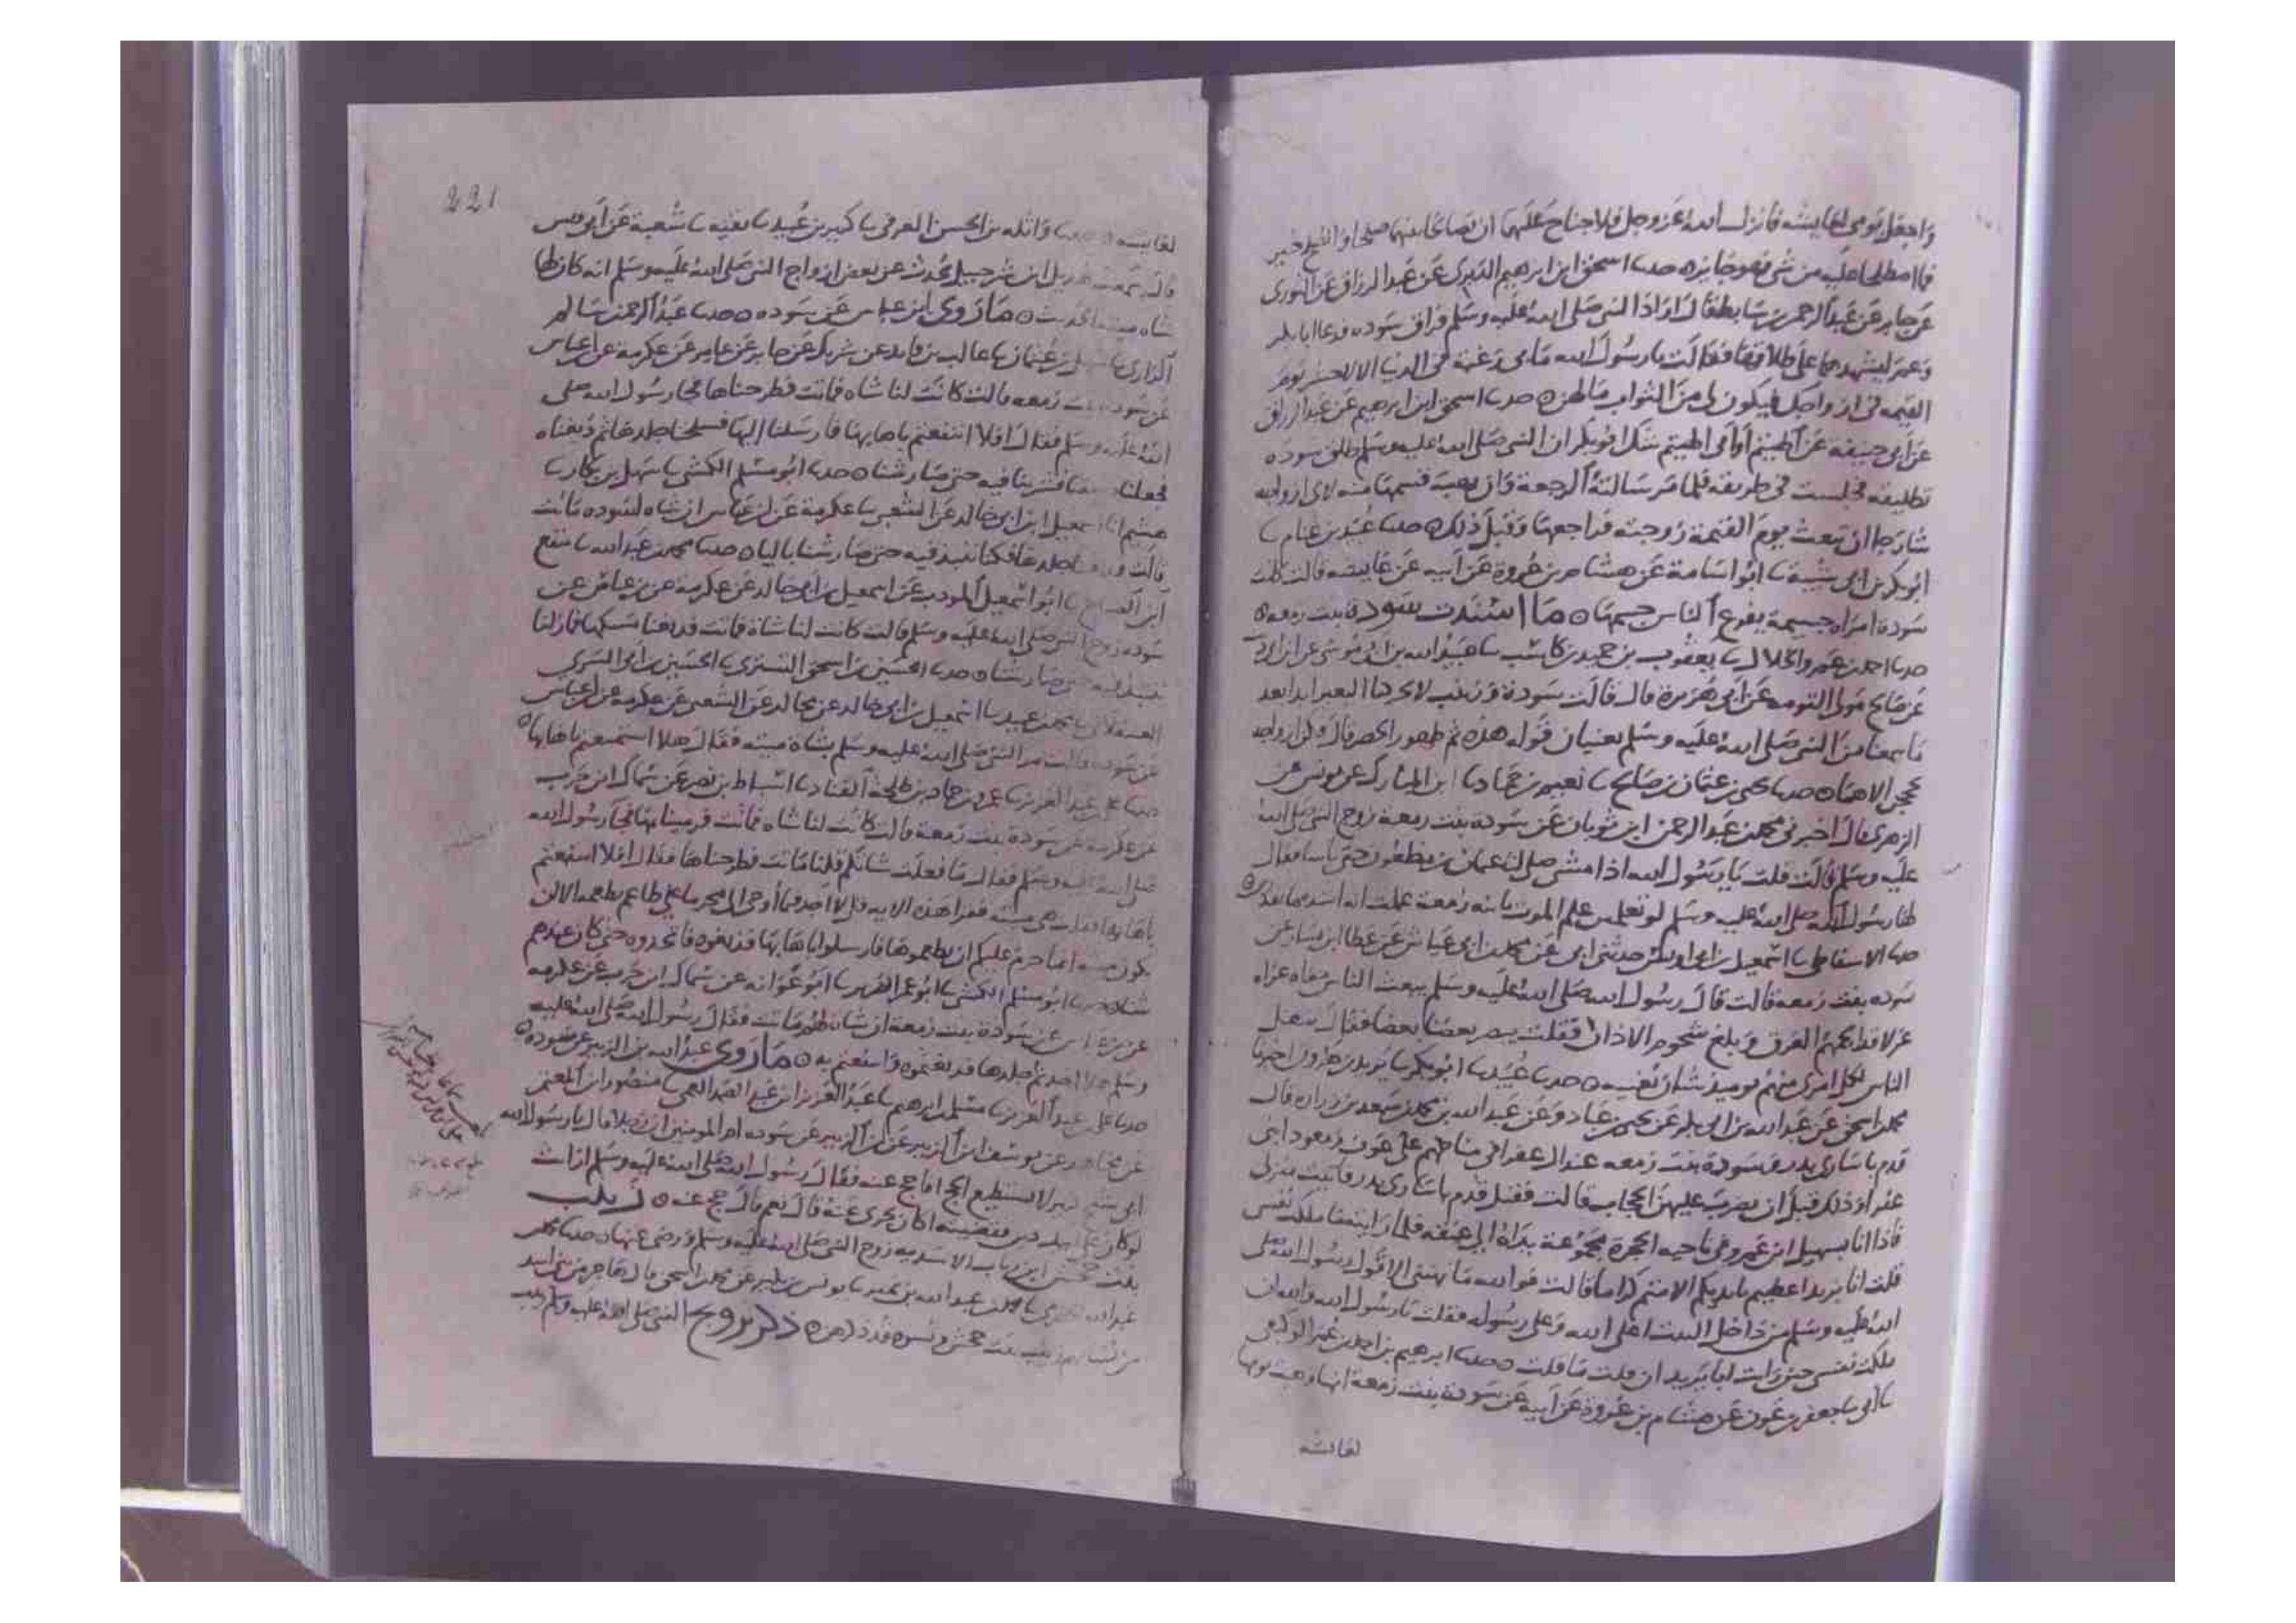 واجعل يومي لعايشه فانزل الله عز وجل فلا جناح عليهما ان يصالحا بينهما صلحا والصلح خير
فما اصطلحا عليه من شي فهو جايز ه حدثنا اسحق ابن ابرهيم الدبري عن عبد الرزاق عن الثوري
عن جابر عن عبد الرحمن بن سابط قال اراد النبي صلى الله عليه وسلم فراق سوده فدعا ابا بكر
وعمر ليشهدهما على طلاقها فقالت يا رسول الله ما بي رغبة في الدنيا الا لاحشر يوم
القيمه في ازواجك فيكون لي من الثواب ما لهن ه حدثنا اسحق ابن ابرهيم عن عبد الرزاق
عن ابي حنيفه عن الهيثم او ابي الهيثم شك ابو بكر ان النبي صلى الله عليه وسلم طلق سوده
تطليقه فجلست في طريقه فلما مر سالته الرجعة وان يهب قسمها منه لاي ازواجه
شا رجا ان تبعث يوم القيمة زوجته فراجعها وقبل ذلك ه حدثنا عبيد بن غنام نا
ابو بكر بن ابي شيبة نا ابو اسامة عن هشام بن عروة عن ابيه عن عايشه قالت كانت
سودة امراه جسيمة يفرع الناس جسمها ه ما اسندت سودة بنت زمعه ه
حدثنا احمد بن عمرو الخلال نا يعقوب بن حميد بن كاسب نا عبيد الله بن موسى عن ابن ابي
عن صالح مولى التومه عن ابي هريرة قال قالت سودة وزينب لا يحركنا البعير ابدا بعد
ما سمعنا من النبي صلى الله عليه وسلم يعنيان قوله هذه ثم ظهور الحصر قال وكن ازواجه
يحججن الا هما ه حدثنا يحيى بن عثمان بن صالح نا نعيم بن حماد نا ابن المبارك عن يونس عن
الزهري قال اخبرني محمد بن عبد الرحمن ابن ثوبان عن سوده بنت زمعة زوج النبي صلى الله
عليه وسلم قالت قلت يا رسول الله اذا متنا صلى لنا عثمان بن مظعون حتى تاتينا فقال
لها رسول الله صلى الله عليه وسلم لو تعلمين علم الموت يا بنة زمعة علمت انه اشد مما تقدرين ه
حدثنا الاسفاطي نا اسمعيل بن ابي اويس حدثني ابي عن محمد بن ابي عياش عن عطا ابن يسار عن
سوده بنت زمعه قالت قال رسول الله صلى الله عليه وسلم يبعث الناس حفاه عراه
غرلا قد الجمهم العرق وبلغ شحوم الاذان فقلت يبصر بعضنا بعضا فقال شغل
الناس لكل امري منهم يوميذ شان يغنيه ه حدثنا عبيد نا ابو بكر نا يزيد بن هرون اخبرنا
محمد بن اسحق عن عبد الله بن ابي بكر عن يحيى بن عباد وعن عبد الله بن محمد بن سعد بن زراره قال
قدم باسارى بدر وسودة بنت زمعه عند ال عفرا في مناحهم على عوف ومعوذ ابني
عفرا وذلك قبل ان يضرب عليهن الحجاب قالت فقيل قدم باسارى بدر فاتيت منزلي
فاذا انا بسهيل ابن عمرو في ناحيه الحجرة مجموعة يداه الى عنقه فلما رايته ما ملكت نفسي
قلت ابا يزيد اعطيتم بايديكم الا متم كراما قالت فوالله ما نبهني الا قول رسول الله صلى
الله عليه وسلم من داخل البيت اعلى الله وعلى رسوله فقلت يا رسول الله والله ان
ملكت نفسي حيث رايت ابا يزيد ان قلت ما قلت ه حدثنا ابرهيم بن احمد بن عمر الوكيعي
نا ابي نا جعفر بن عون عن هشام بن عروة عن ابيه عن سودة بنت زمعة انها وهبت يومها
لعايشه
221
لعايشه ه حدثنا واثله بن الحسن العرقي نا كثير بن عبيد نا بقيه نا شعبة عن ابي قيس
قال سمعت هزيل ابن شرحبيل يحدث عن بعض ازواج النبي صلى الله عليه وسلم انه كان لها
شاه ميته الحديث ه ما روى ابن عباس عن سوده ه حدثنا عبد الرحمن بن سالم
الرازي نا سهل بن عثمان نا غالب بن فايد عن شريك عن جابر عن عامر عن عكرمة عن ابن عباس
عن سودة بنت زمعه قالت كانت لنا شاه فماتت فطرحناها فجا رسول الله صلى
الله عليه وسلم فقال افلا انتفعتم باهابها فارسلنا اليها فسلخنا جلدها ثم دبغناه
فجعلناه سقا فشربنا فيه حتى صار شنا ه حدثنا ابو مسلم الكشي نا سهل بن بكار نا
هشيم انا اسمعيل ابن ابي خالد عن الشعبي نا عكرمة عن ابن عباس ان شاه لسوده ماتت
قالت فدبغنا جلدها فكنا ننبذ فيه حتى صار شنا باليا ه حدثنا محمد بن عبد الله نا
ابن الصباح نا ابو اسمعيل المودب عن اسمعيل بن ابي خالد عن عكرمة عن بن عباس عن
سوده زوج النبي صلى الله عليه وسلم قالت كانت لنا شاة فماتت فدبغنا مسكها فما زلنا
ننبذ فيه حتى صار شنا ه حدثنا الحسين بن اسحق التستري نا الحسين بن ابي السري
العسقلاني نا محمد بن عبيد نا اسمعيل بن ابي خالد عن مجالد عن الشعبي عن عكرمه عن ابن عباس
عن سوده قالت مر النبي صلى الله عليه وسلم بشاة ميته فقال هلا استمتعتم باهابها ه
حدثنا علي بن عبد العزيز نا عمرو بن حماد بن طلحة القناد نا اسباط بن نصر عن سماك ابن حرب
عن عكرمة عن سودة بنت زمعة قالت كانت لنا شاه فماتت فرمينا بها فجا رسول الله
صلى الله عليه وسلم فقال ما فعلت شاتكم قلنا ماتت فطرحناها فقال افلا استنفعتم
باهابها فقلت هي ميته فقرا هذه الايه قل لا اجد فيما أوحي الي محرما على طاعم يطعمه الا ان
يكون ميته انما حرم عليكم ان تطعموها فارسلوا باهابها فدبغوه فاتخذوه حتى كان عندهم
شناه حدثنا ابو مسلم الكشي نا ابو عمر الضرير نا ابو عوانه عن سماك ابن حرب عن عكرمه
عن بن عباس عن سودة بنت زمعة ان شاة لهم ماتت فقال رسول الله صلى الله عليه
وسلم هلا اخذتم جلدها فدبغتموه وانتفعتم به ه ما روى عبد الله بن الزبير عن سوده ه
حدثنا علي بن عبد العزيز نا مسلم بن ابرهيم نا عبد العزيز ابن عبد الصمد العمي نا منصور ابن المعتمر
عن مجاهد عن يوسف ابن الزبير عن ابن الزبير عن سوده ام المومنين ان رجلا قال يا رسول الله
ابي شيخ كبير لا يستطيع الحج افاحج عنه فقال رسول الله صلى الله عليه وسلم ارايت
لو كان على ابيك دين فقضيته اكان يجزى عنه قال نعم قال حج عنه ه زينب
بنت جحش ابن رياب الاسديه زوج النبي صلى الله عليه وسلم ورضي عنها ه حدثنا محمد بن
عبد الله الحضرمي نا محمد بن عبد الله بن نمير نا يونس بن بكير عن محمد بن اسحق قال هاجر من بني اسد
من نسايهم زينب بنت جحش ونسوه قد ذكرهن ه ذكر تزويج النبي صلى الله عليه وسلم زينب